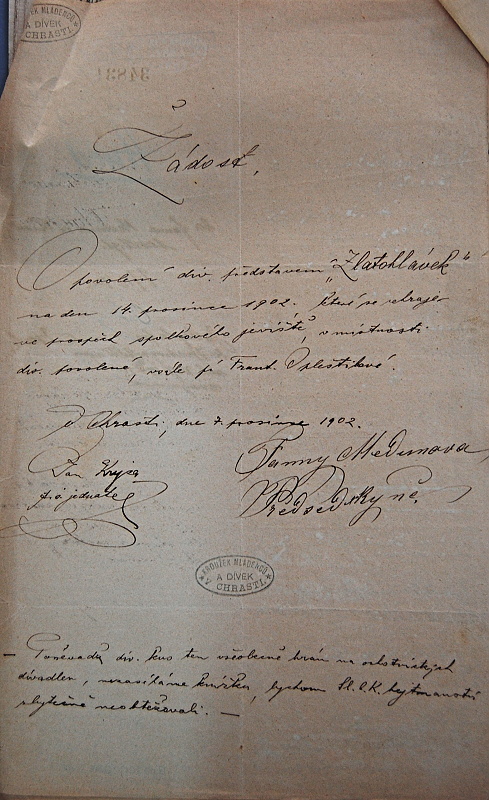 KROUŽEK MLADENCŮ
A DÍVEK
V CHRASTI.
Žádost,
O povolení div. představení „Zlatohlávek“
na den 14. prosince 1902. které se sehraje
ve prospěch spolkového jeviště, v místnosti
div. povolené, vdle pí Frant.
V Chrasti, dne 7. prosince 1902.
Jan Krejza
t. č. jednatel
Fanny Mečunova
Předsedkyně.
KROUŽEK MLADENCŮ
A DÍVEK
V CHRASTI.
– Poněvadž div. kus ten všeobecně hrán na ochotnických
divadlech, nezasíláme knížku, bychom Sl. c. k. hejtmanství
zbytečně neobtěžovali. –